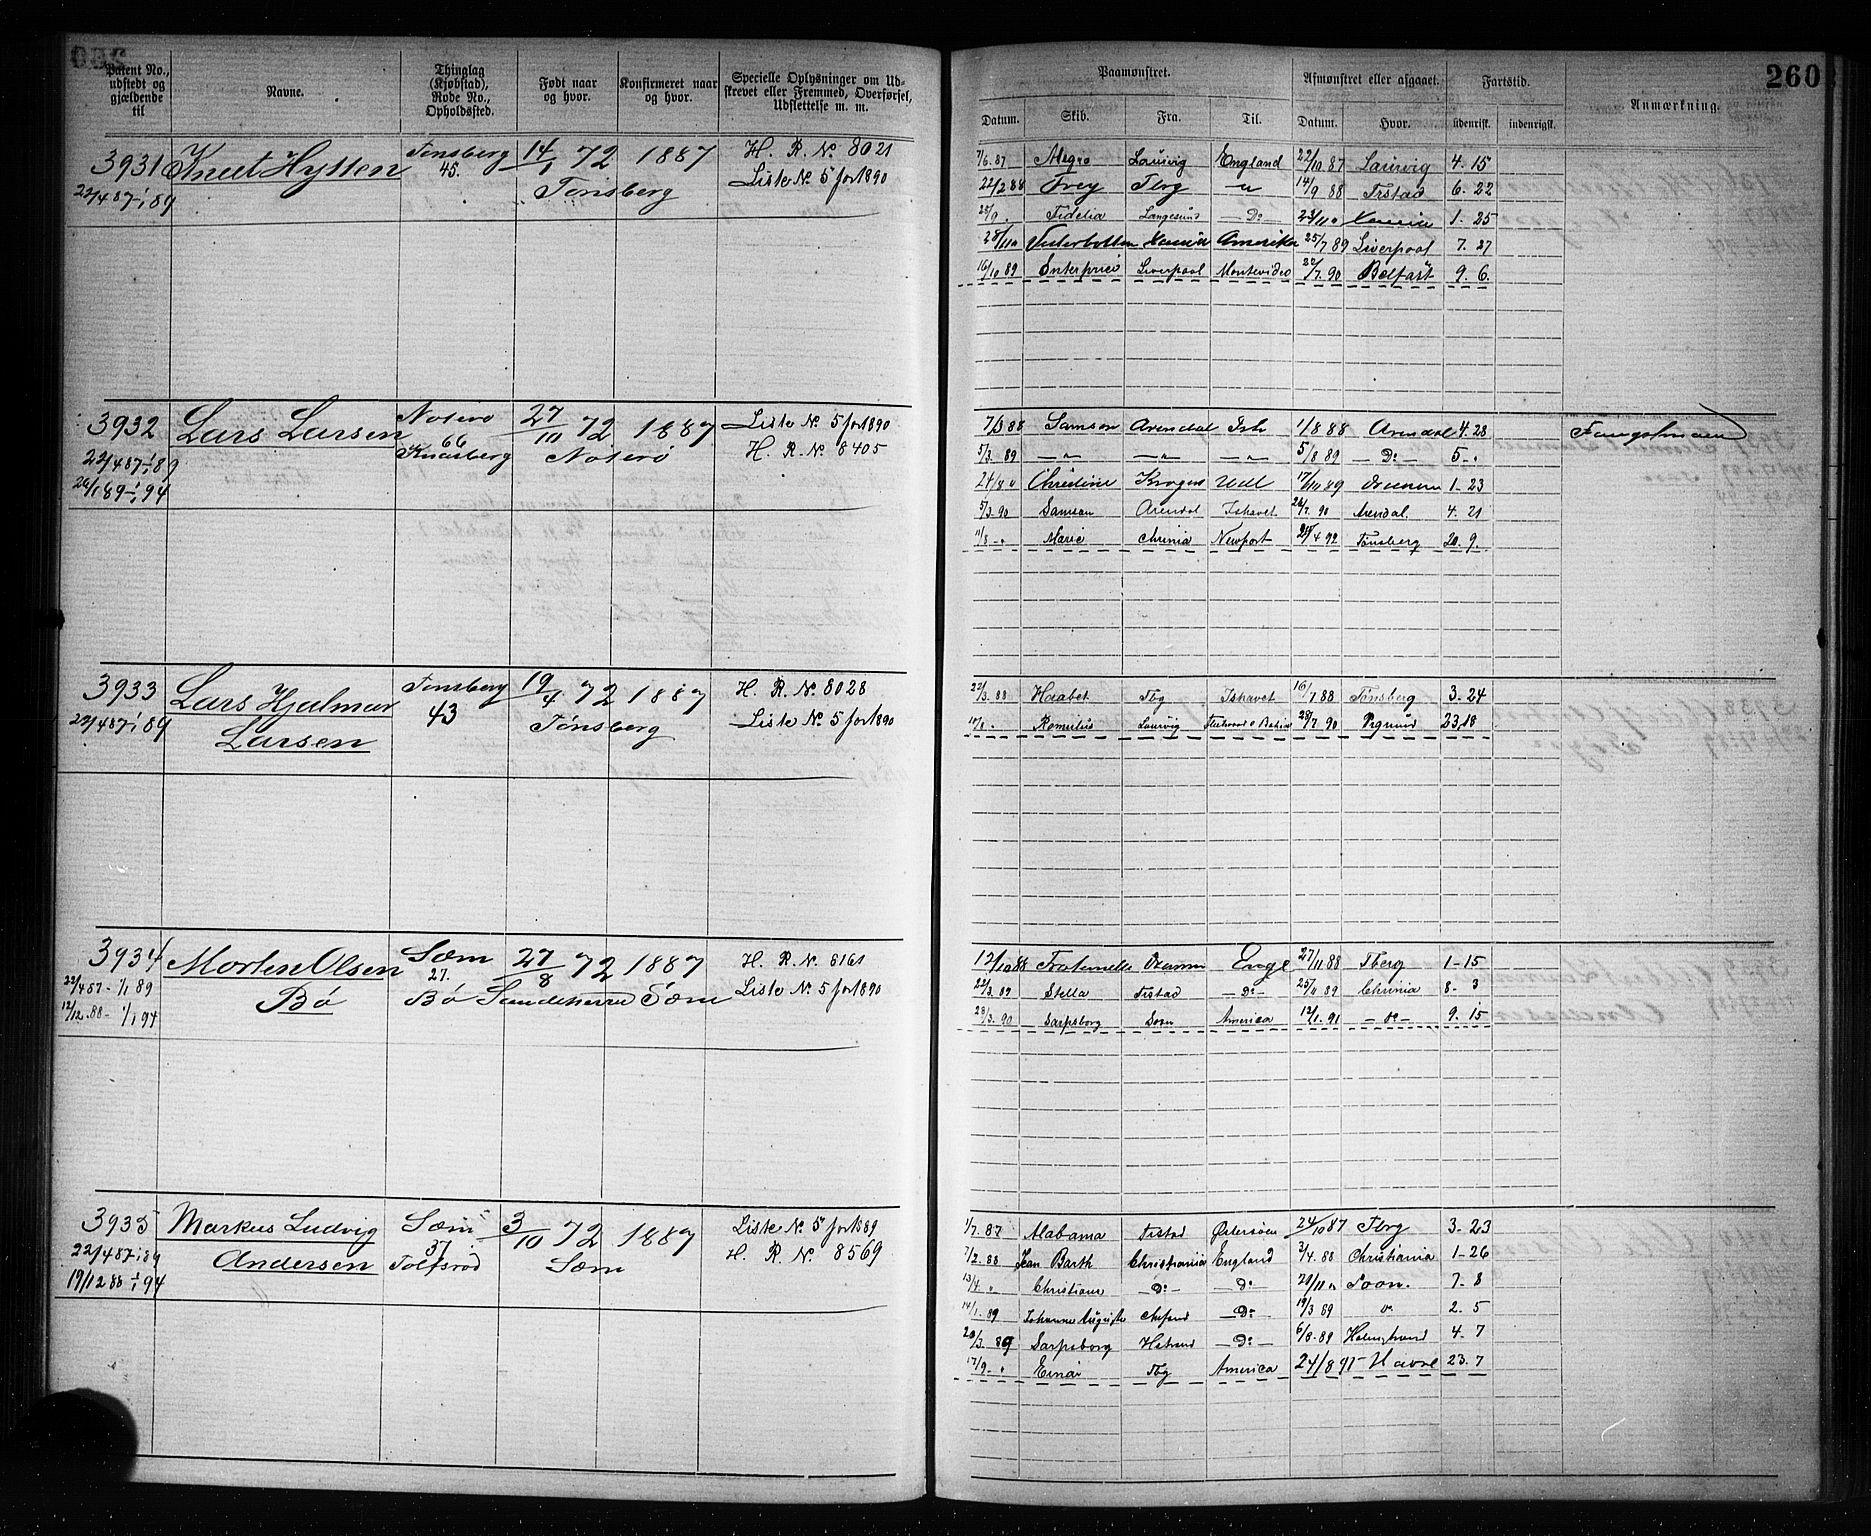 260
Patent No., udstedt og gjældende til
Navne.
Thinglag (Kjøbstad), Rode No., Opholdssted.
Født naar og hvor.
Konfirmeret naar og hvor.
Specielle Oplysninger om Udskrevet eller Fremmed, Overførsel, Udslettelse m. m.
Paamønstret.
Afmønstret eller afgaaet.
Fartstid.
Anmærkning.
Datum. Skib. Fra. Til. Datum. Hvor. udenrigsk. indenrigsk.
3931 Knut Hytten Tønsberg 14/1 72 1887 H. R. No 8021
22/4 87-1/1 89 45. Tønsberg Liste No 5 for 1890
7/6 87 Alegro Laurvig England 22/10 87 Laurvig 4. 15
22/2 88 Frey Tbrg -"- 14/9 88 Frstad 6. 22
25/9 . Fidelia Langesund -Do- 23/11 " 1. 25
28/11 " Vesterbotten Amerika 25/7 89 Liverpool 7. 27
16/10 89 Enterprise Liverpool Montevideo 22/7. 90 Belfast 9. 6.
3932 Lars Larsen Noterø 27/10 72 1887 Liste No 5 for 1890
22/4 87-1/1 89 66 Knarberg Noterø H. R. No 8405
24/1 89-1/1 94
7/3 88 Samson Arendal Ish 1/8 88 Arendal 4. 28 Fangstmand
5/3. 89 -"- -"- -"- 5/8 89 -Do- 5 - .
24/8 " Christine Kragerø Udl 17/10 89 1. 23
5/3. 90 Samson Arendal Ishavet 26/7. 90 Arendal. 4. 21
11/8 - " Marie Chrinia Newport 20/4 92 Tønsberg 20. 9.
3933 Lars Hjalmar Tønsberg 19/4 72 1887 H. R. No 8028
22/4 87-1/1 89 Larsen 43 Tønsberg Liste No 5 for 1890
22/3. 88 Haabet Tbg Ishavet 16/7 88 Tønsberg 3. 24
17/8 . Romulus Laurvig Fleetwood o Bahia 28/7. 90 Prgrund 23,18
3934 Morten Olsen Sæm 27/8 72 1887 H. R. No 8161
22/4 87 - 1/1 89 Bø 27. Bø Sandeherred Sæm Liste No 5 for 1890
12/12. 88 - 1/1 94
12/10 88 Fraternelle Dramm Engl 27/11 88 Tberg 1-15
22/3. 89 Stella Frstad -Do- 25/11 89 Chrinia 8- 3
28/3. 90 Sarpsborg Soon America 12/1. 91 -do- 9. 15
3935 Markus Ludvig Sæm 3/10 72 1887 Liste No 5 for 1889
22/4 87-1/1 89 Andersen 37 Tolfsrød Sæm H. R. No. 8569
19/12 88-1/1 94
1/7. 87 Alabama Frstad Østersøen 24/10 87 Tbrg 3-23
7/2. 88 Jean Barth Christiania England 3/4. 88 Christiania 1-26
13/4 " Christiane -Do- -Do- 20/11 " Soon. 7-8
14/1. 89 Johanne Auguste -Do- 19/3 89 " 2. 5
20/3. 89 Sarpsborg Hstrand -Do- 6/8-89 Holmstrand 4. 7
17/9 - " Einar Tbg America 24/8 91- Havre 23. 7